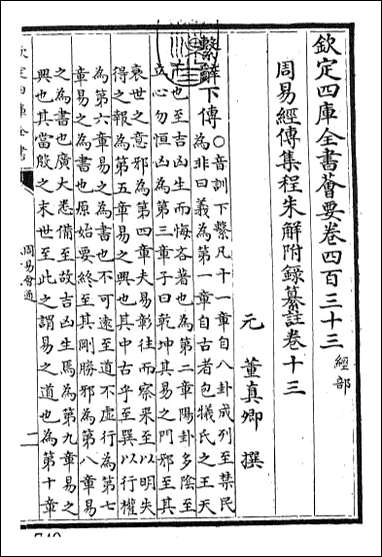 欽定四庫全書薈要卷四百三十三 經部
周易經傳集程朱解附錄纂註卷十三
元 董真卿 撰
繫辭下傳○音訓下繫凡十一章自八卦成列至禁民
為非曰義為第一章自古者包犧氏之王天
下也至吉凶生而悔吝著也為第二章陽卦多陰至
立心勿恒凶為第三章子曰乾坤其易之門邪至其
衰世之意邪為第四章夫易彰往而察來至以明失
得之報為第五章易之興也其中古乎至巽以行權
為第六章易之為書也不可遠至道不虛行為第七
章易之為書也原始要終至其剛勝邪為第八章易
之為書也廣大悉備至故吉凶生焉為第九章易之
興也其當殷之末世至此之謂易之道也為第十章
欽定四庫全書
周易會通